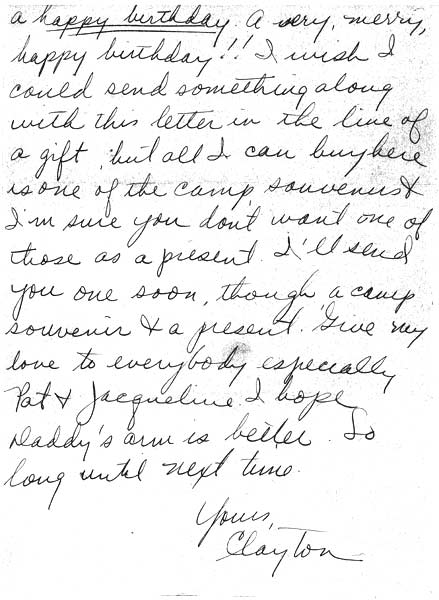 a happy birthday. A very, merry,
happy birthday!! I wish I
could send something along
with this letter in the line of
a gift, but all I can buy here
is one of the camp souvenirs &
I'm sure you don't want one of
those as a present. I'll send
you one soon, though a camp
souvenir & a present. Give my
love to everybody especially
Pat & Jacqueline. I hope
Daddy's arm is better. So
long until next time.
Yours,
Clayton